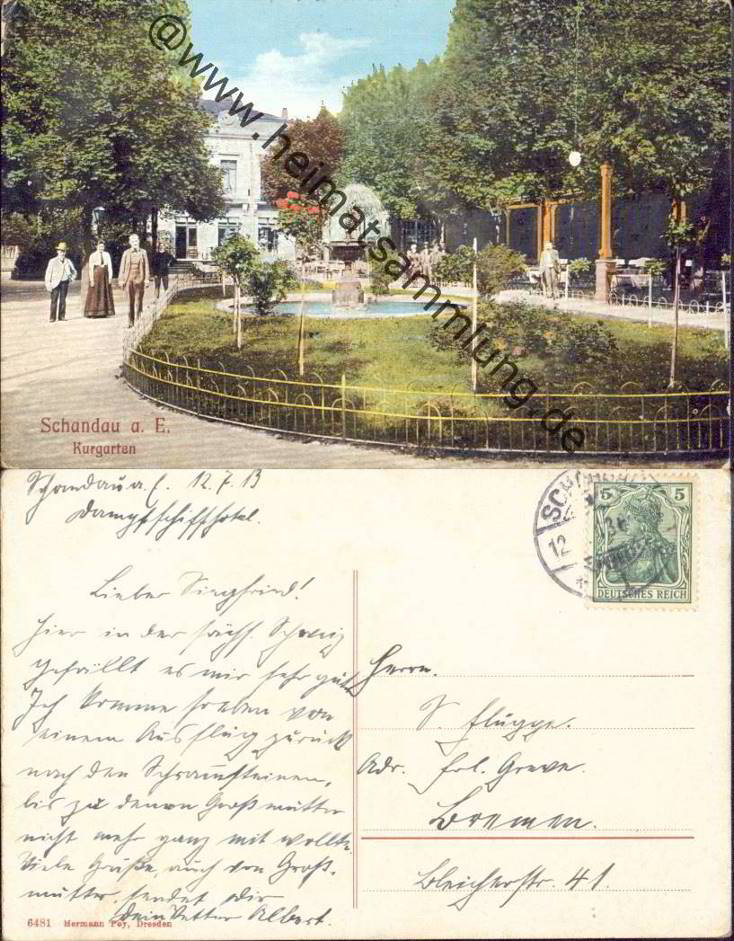 @www.heimatsammlung.de
Schandau a. E.
Kurgarten
Schandau a. E. 12.7.13
Dampfschiffhotel.
5 5
DEUTSCHES REICH
12
Lieber Siegfried!
Hier in der sächs. Schweiz
gefällt es mir sehr gut.
Ich komme soeben von
einem Ausflug zurück
nach den Schrammsteinen,
bis zu denen Großmutter
nicht mehr ganz mit wollte.
Viele Grüße, auch von Groß-
mutter, sendet Dir
Dein Vetter Albert.
Herrn.
S. Flügge.
Adr. Frl. Greve.
Bremen.
Bleicherstr. 41.
6481 Hermann Poy, Dresden